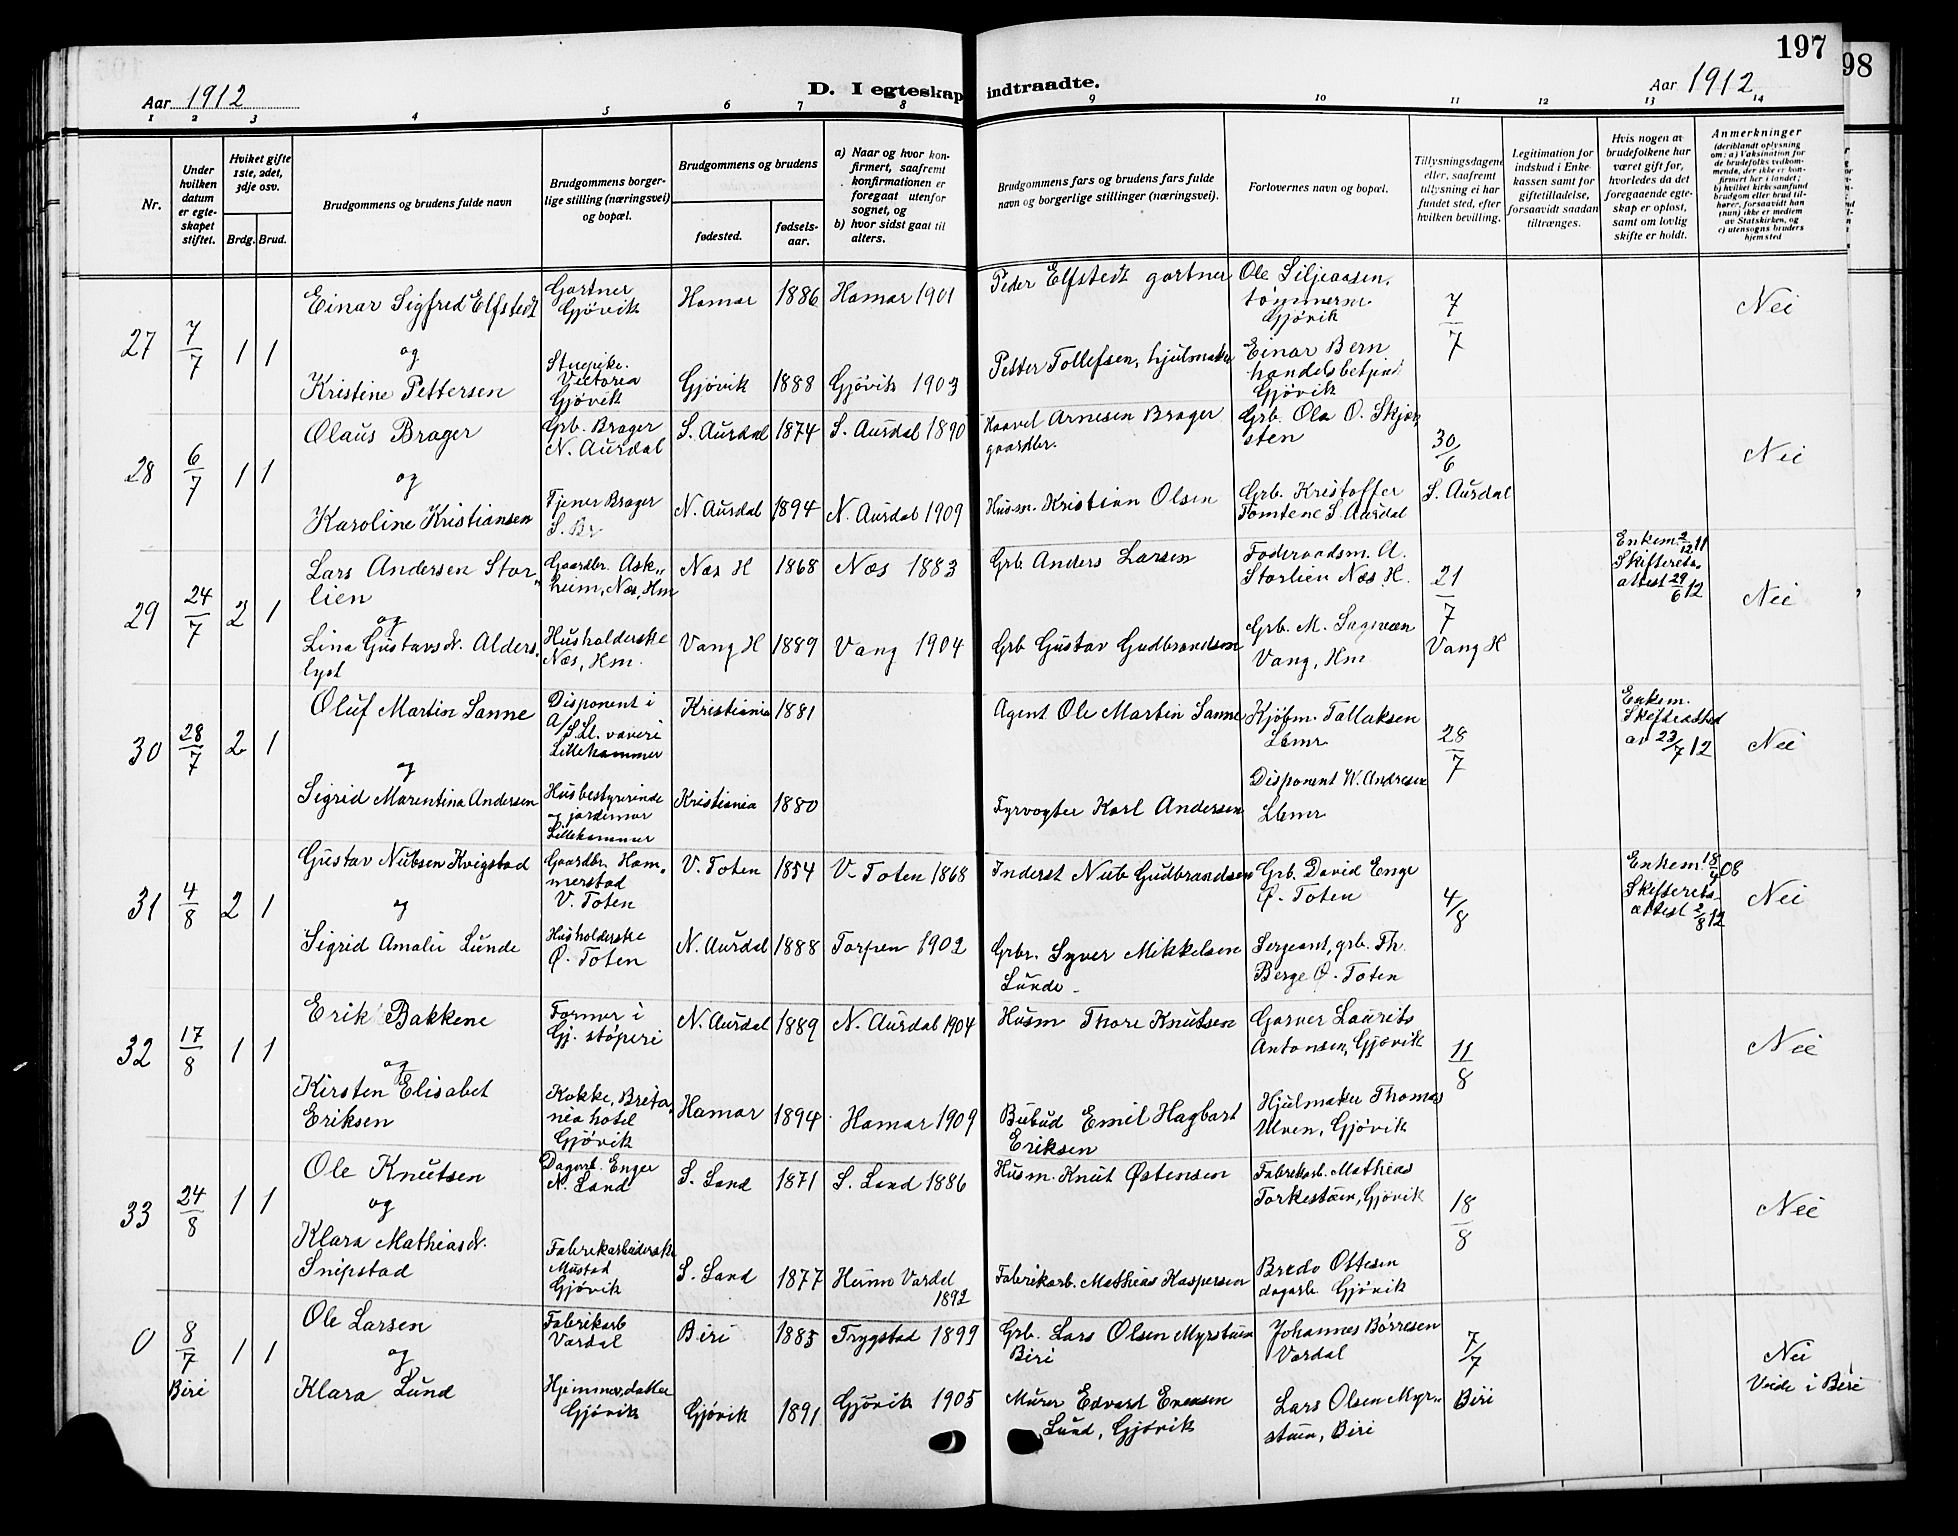 197
98
Aar 1912
D. I egteskap indtraadte.
Aar 1912
1 2 3 4 5 6 7 8 9 10 11 12 13 14
Nr.
Under hvilken datum er egteskapet stiftet.
Hvilket gifte 1ste, 2det, 3dje osv.
Brdg. Brud.
Brudgommens og brudens fulde navn
Brudgommens borgerlige stilling (næringsvei) og bopæl.
Brudgommens og brudens
fødested.
fødselsaar.
a) Naar og hvor konfirmert, saafremt konfirmationen er foregaat utenfor sognet, og
b) hvor sidst gaat til alters.
Brudgommens fars og brudens fars fulde navn og borgerlige stillinger (næringsvei).
Forlovernes navn og bopæl.
Tillysningsdagene eller, saafremt tillysning ei har fundet sted, efter hvilken bevilling.
Legitimation for indskud i Enkekassen samt for giftetilladelse, forsaavidt saadan tiltrænges.
Hvis nogen av brudefolkene har været gift før, hvorledes da det foregaaende egteskap er opløst, samt om lovlig skifte er holdt.
Anmerkninger
(deriblandt oplysning om: a) Vaksination for de brudefolks vedkommende, der ikke er konfirmert her i landet;
b) hvilket kirkesamfund brudgom eller brud tilhører, forsaavidt han (hun) ikke er medlem av Statskirken, og
c) utensogns bruders hjemsted
27 7/7 1 1
Einar Sigfred Elfstedt
og
Kristine Pettersen
Gartner
Gjøvik
Stuepike.
Victoria
Gjøvik
Hamar 1886 Hamar 1901
Gjøvik 1888 Gjøvik 1903
Peder Elfstedt gartner
Petter Tollefsen, hjulmaker
Ole Siljeaasen,
tømmerm
Gjøvik
Einar Bern
handelsbetjent
Gjøvik
7/7
Nei
28 6/7 1 1
Olaus Brager
og
Karoline Kristiansen
Grb. Brager
N. Aurdal
Tjener Brager
S. Br
S. Aurdal 1874 S. Aurdal 1890
N. Aurdal 1894 N. Aurdal 1909
Haavel Arnesen Brager
gaardbr.
Husm. Kristian Olsen
Grb. Ola O. Skjær
sten
Grb. Kristoffer
Tomtene S. Aurdal
30/6
S. Aurdal
Nei
29 24/7 2 1
Lars Andersen Stor„
lien
og
Lina Gustavsd. Alders„
lyst
Gaardbr. Ask„
heim, Næs, Hm
Husholderske
Næs, Hm.
Næs H 1868 Næs 1883
Vang H 1889 Vang 1904
Grb Anders Larsen
Grb Gustav Gudbrandsen
Foderaadsm. A.
Storlien Næs, H.
Grb. M. Sagveen
Vang, Hm
21/7
Vang H
Enkem. 2/12 11
Skifterets„
attest 29/6 12
Nei
30 28/7 2 1
Oluf Martin Sanne
og
Sigrid Marentina Andersen
Disponent i
A/S Ll. væveri
Lillehammer
Husbestyrerinde
og jordemor
Lillehammer
Kristiania 1881
Kristiania 1880
Agent Ole Martin Sanne
Fyrvogter Karl Andersen
Kjøbm. Tallaksen
Lhmr
Disponent W. Andresen
Lhmr
28/7
Enkem.
Skifteattest
av 23/7 12
Nei
31 4/8 2 1
Gustav Nubsen Kvigstad
og
Sigrid Amalie Lunde
Gaardbr. Ham„
merstad
V. Toten
Husholderske
Ø. Toten
V. Toten 1854 V. Toten 1868
N. Aurdal 1888 Torpen 1902
Inderst Nub Gudbrandsen
Grbr. Syver Mikkelsen
Lunde
Grb. David Enge
Ø. Toten
Sergeant, grb. Th.
Berge Ø. Toten
4/8
Enkem. 18/4 08
Skifterets„
attest 2/8 12
Nei
32 17/8 1 1
Erik Bakkene
og
Kirsten Elisabet
Eriksen
Former i
Gj. støperi
Kokke, Brita„
nia hotel
Gjøvik
N. Aurdal 1889 N. Aurdal 1904
Hamar 1894 Hamar 1909
Husm Thore Knutsen
Bybud Emil Hagbart
Eriksen
Garver Laurits
Antonsen, Gjøvik
Hjulmaker Thomas
Ulven, Gjøvik
11/8
Nei
33 24/8 1 1
Ole Knutsen
og
Klara Mathiasd.
Snipstad
Dagarb. Enger
N. Land
Fabrikarbeiderske
Mustad
Gjøvik
S. Land 1871 S. Land 1886
S. Land 1877 Hunn Vardal
1892
Husm. Knut Østensen
Fabrikarb. Mathias Kaspersen
Fabrikarb. Mathias
Torkestuen, Gjøvik
Bredo Ottesen
dagarb. Gjøvik
18/8
Nei
0 8/7 Biri 1 1
Ole Larsen
og
Klara Lund
Fabrikarb
Vardal
Hjemmev. datter
Gjøvik
Biri 1885 Trygstad 1899
Gjøvik 1891 Gjøvik 1905
Grb. Lars Olsen Myrstuen
Biri
Murer Edvard Evensen
Lund, Gjøvik
Johannes Børresen
Vardal
Lars Olsen Myr„
stuen, Biri
7/7
Biri
Nei
Viede i Biri